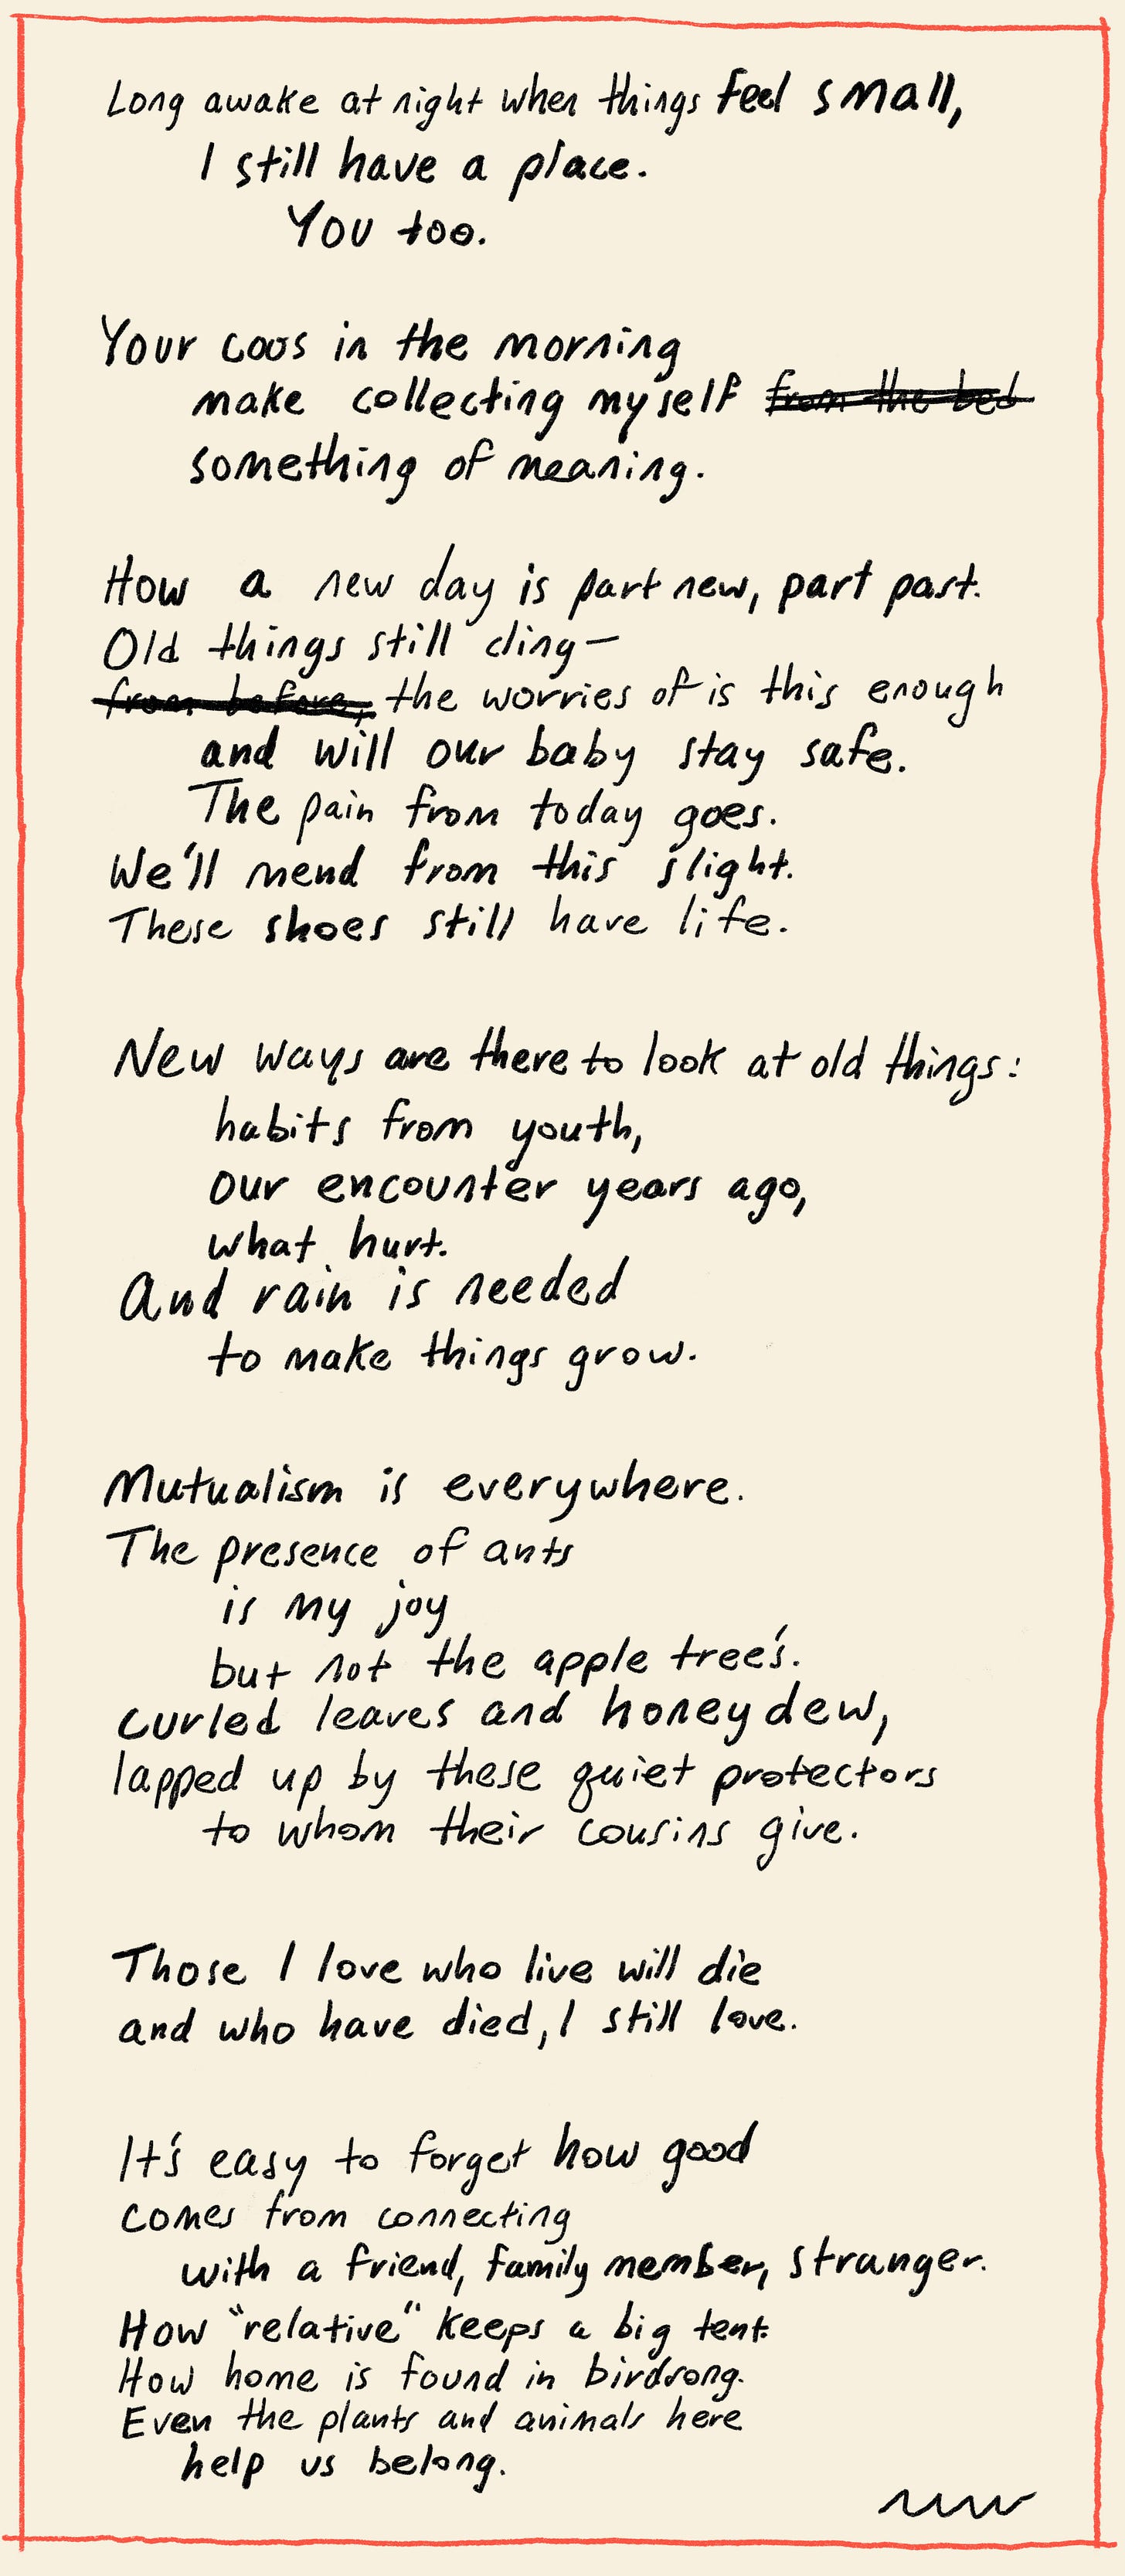 Long awake at night when things feel small,
I still have a place.
You too.
Your coos in the morning
make collecting myself from the bed
something of meaning.
How a new day is part new, part past.
Old things still cling—
from before, the worries of is this enough
and will our baby stay safe.
The pain from today goes.
We'll mend from this slight.
These shoes still have life.
New ways are there to look at old things:
habits from youth,
our encounter years ago,
what hurt.
And rain is needed
to make things grow.
Mutualism is everywhere.
The presence of ants
is my joy
but not the apple tree's.
Curled leaves and honeydew,
lapped up by these quiet protectors
to whom their cousins give.
Those I love who live will die
and who have died, I still love.
It's easy to forget how good
comes from connecting
with a friend, family member, stranger.
How "relative" keeps a big tent.
How home is found in birdsong.
Even the plants and animals here
help us belong.